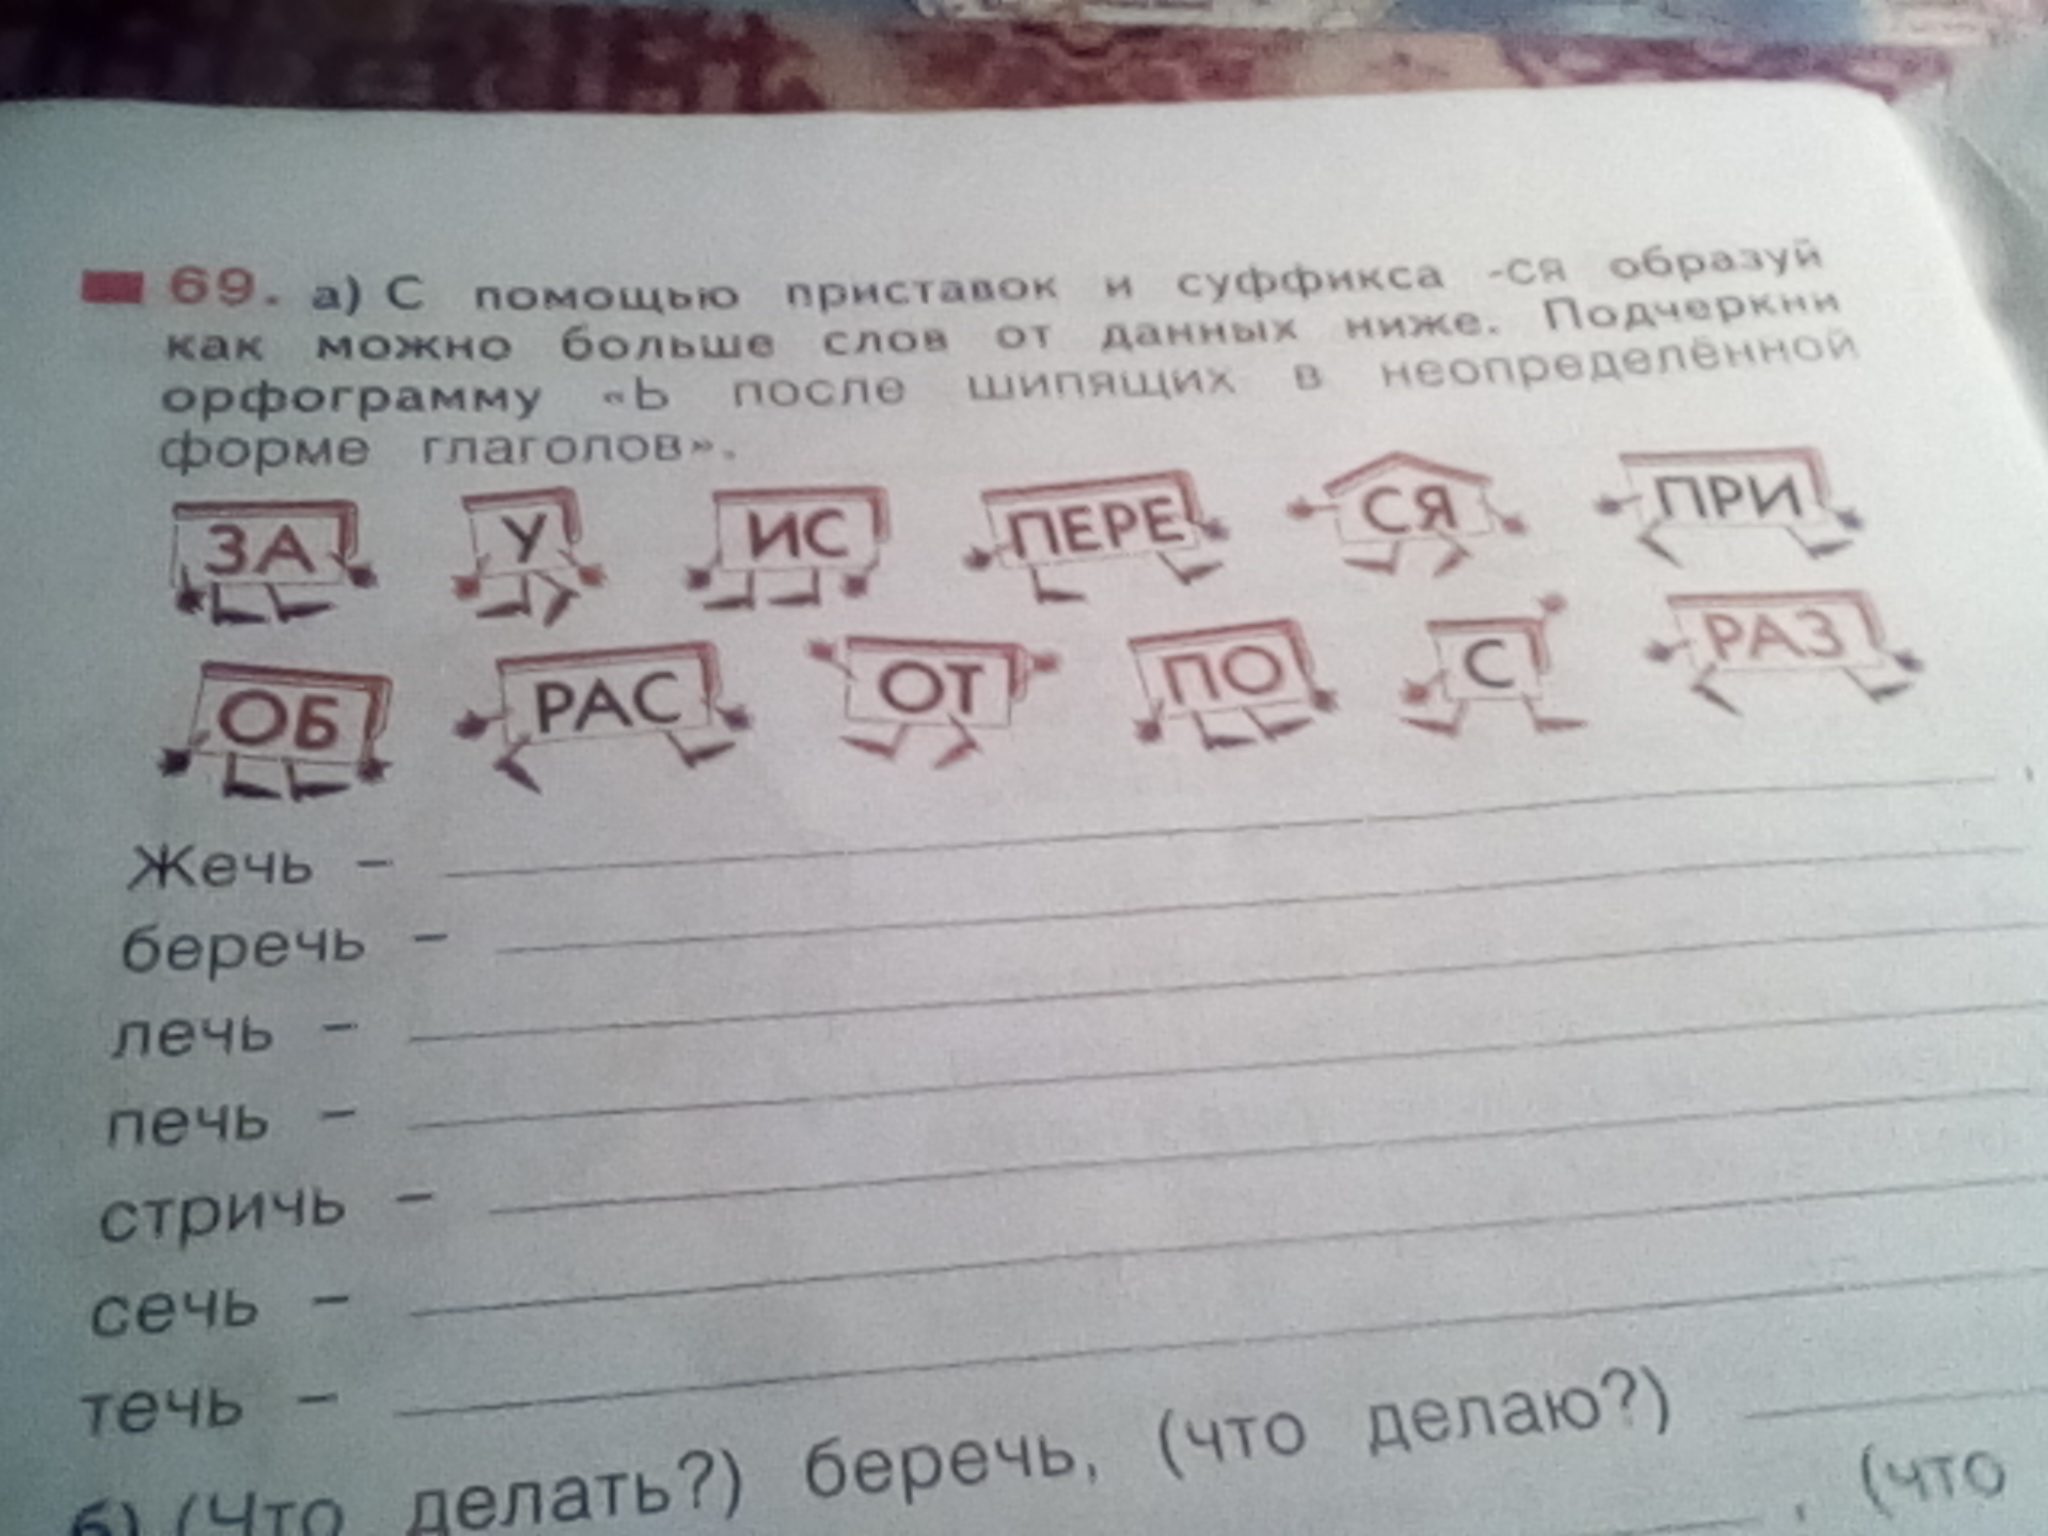 69. а) С помощью приставок и суффикса -ся образуй
как можно больше слов от данных ниже. Подчеркни
орфограмму «Ь после шипящих в неопределённой
форме глаголов».
ЗА У ИС ПЕРЕ СЯ ПРИ
ОБ РАС ОТ ПО С РАЗ
Жечь –
беречь –
лечь –
печь –
стричь –
сечь –
течь –
б) (Что делать?) беречь, (что делаю?)
, (что